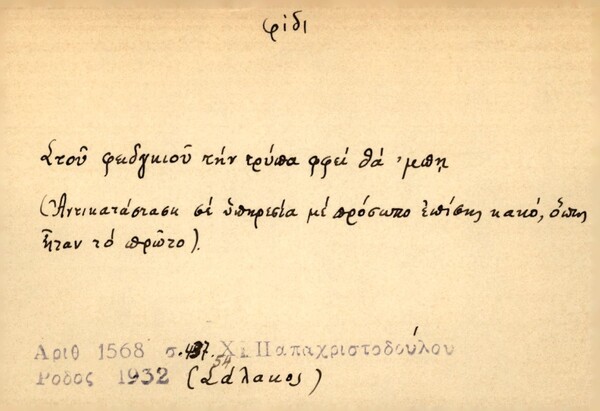 φίδι
Στοῦ φειδκιοῦ τήν τρύπα φφεί θά 'μπῃ
(Ἀντικατάσταση σέ ὑπηρεσία μέ πρόσωπο ἐπίσης κακό, ὅπως
ἦταν τό πρῶτο).
Αριθ 1568 σ. 437. Χ. Παπαχριστοδούλου
54
Ρόδος 1932 (Σάλακος)